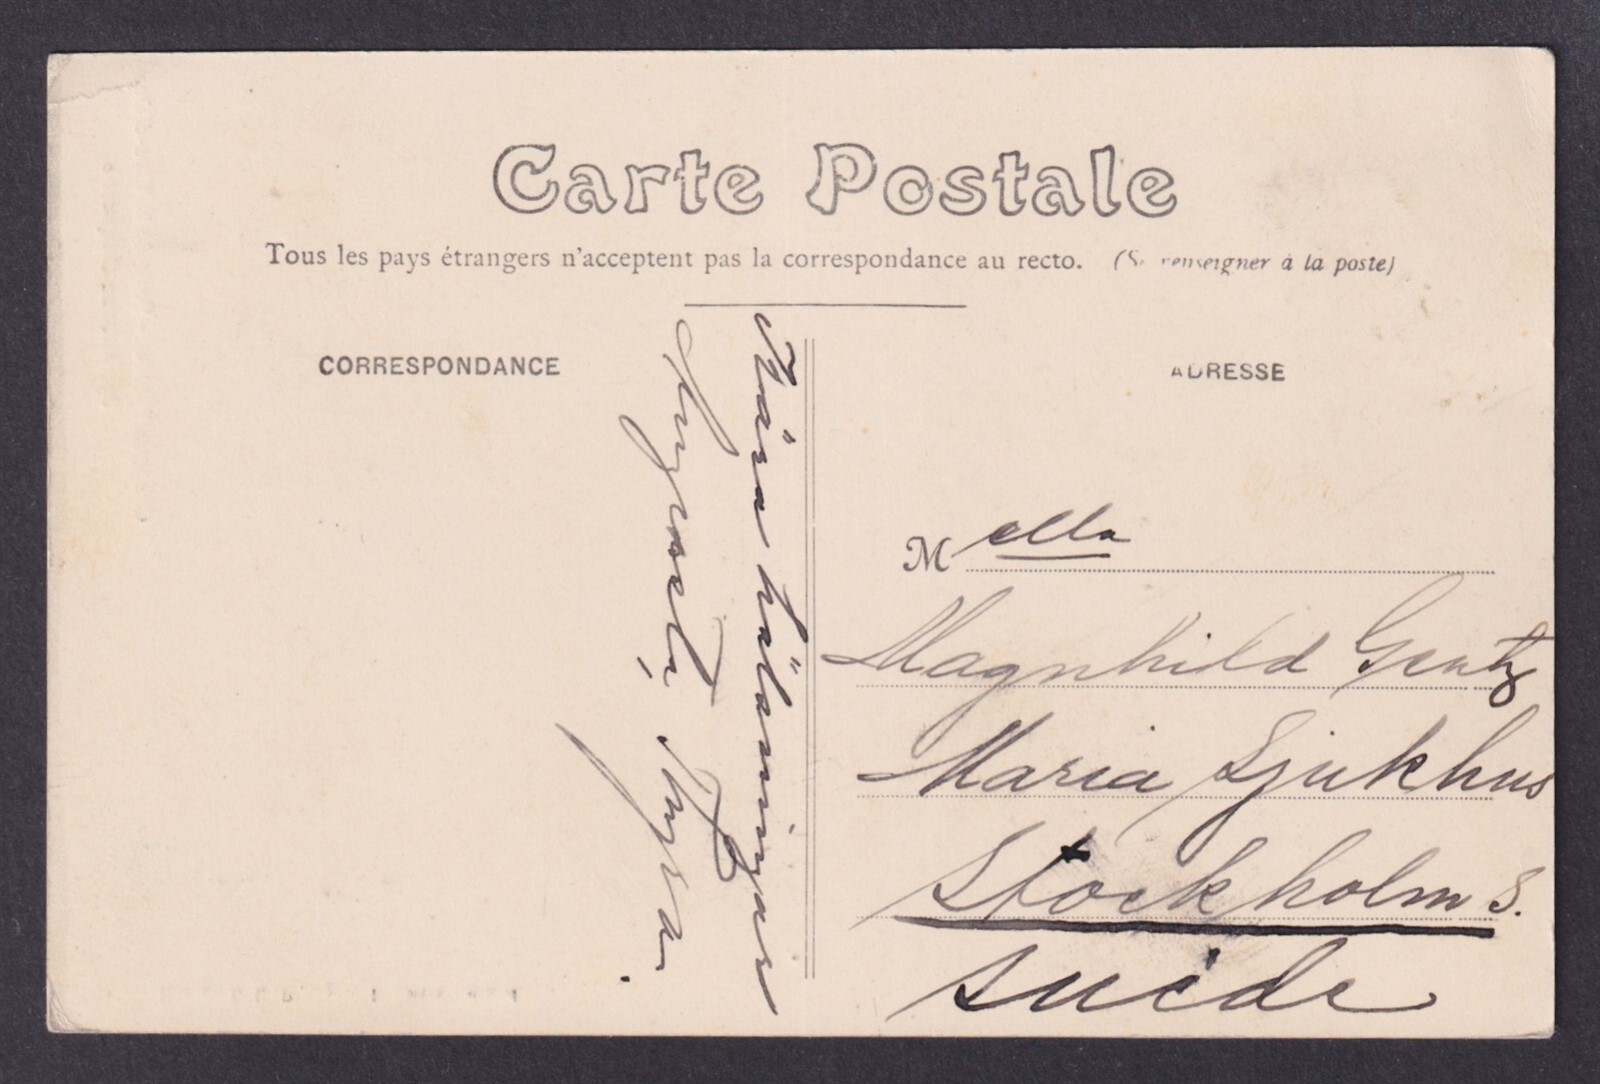 Carte Postale
Tous les pays étrangers n'acceptent pas la correspondance au recto. (Se renseigner à la poste)
CORRESPONDANCE
Kära hälsningar
ADRESSE
Mella
Magnhild Gentz
Maria Sjukhus
Stockholm S.
Suède